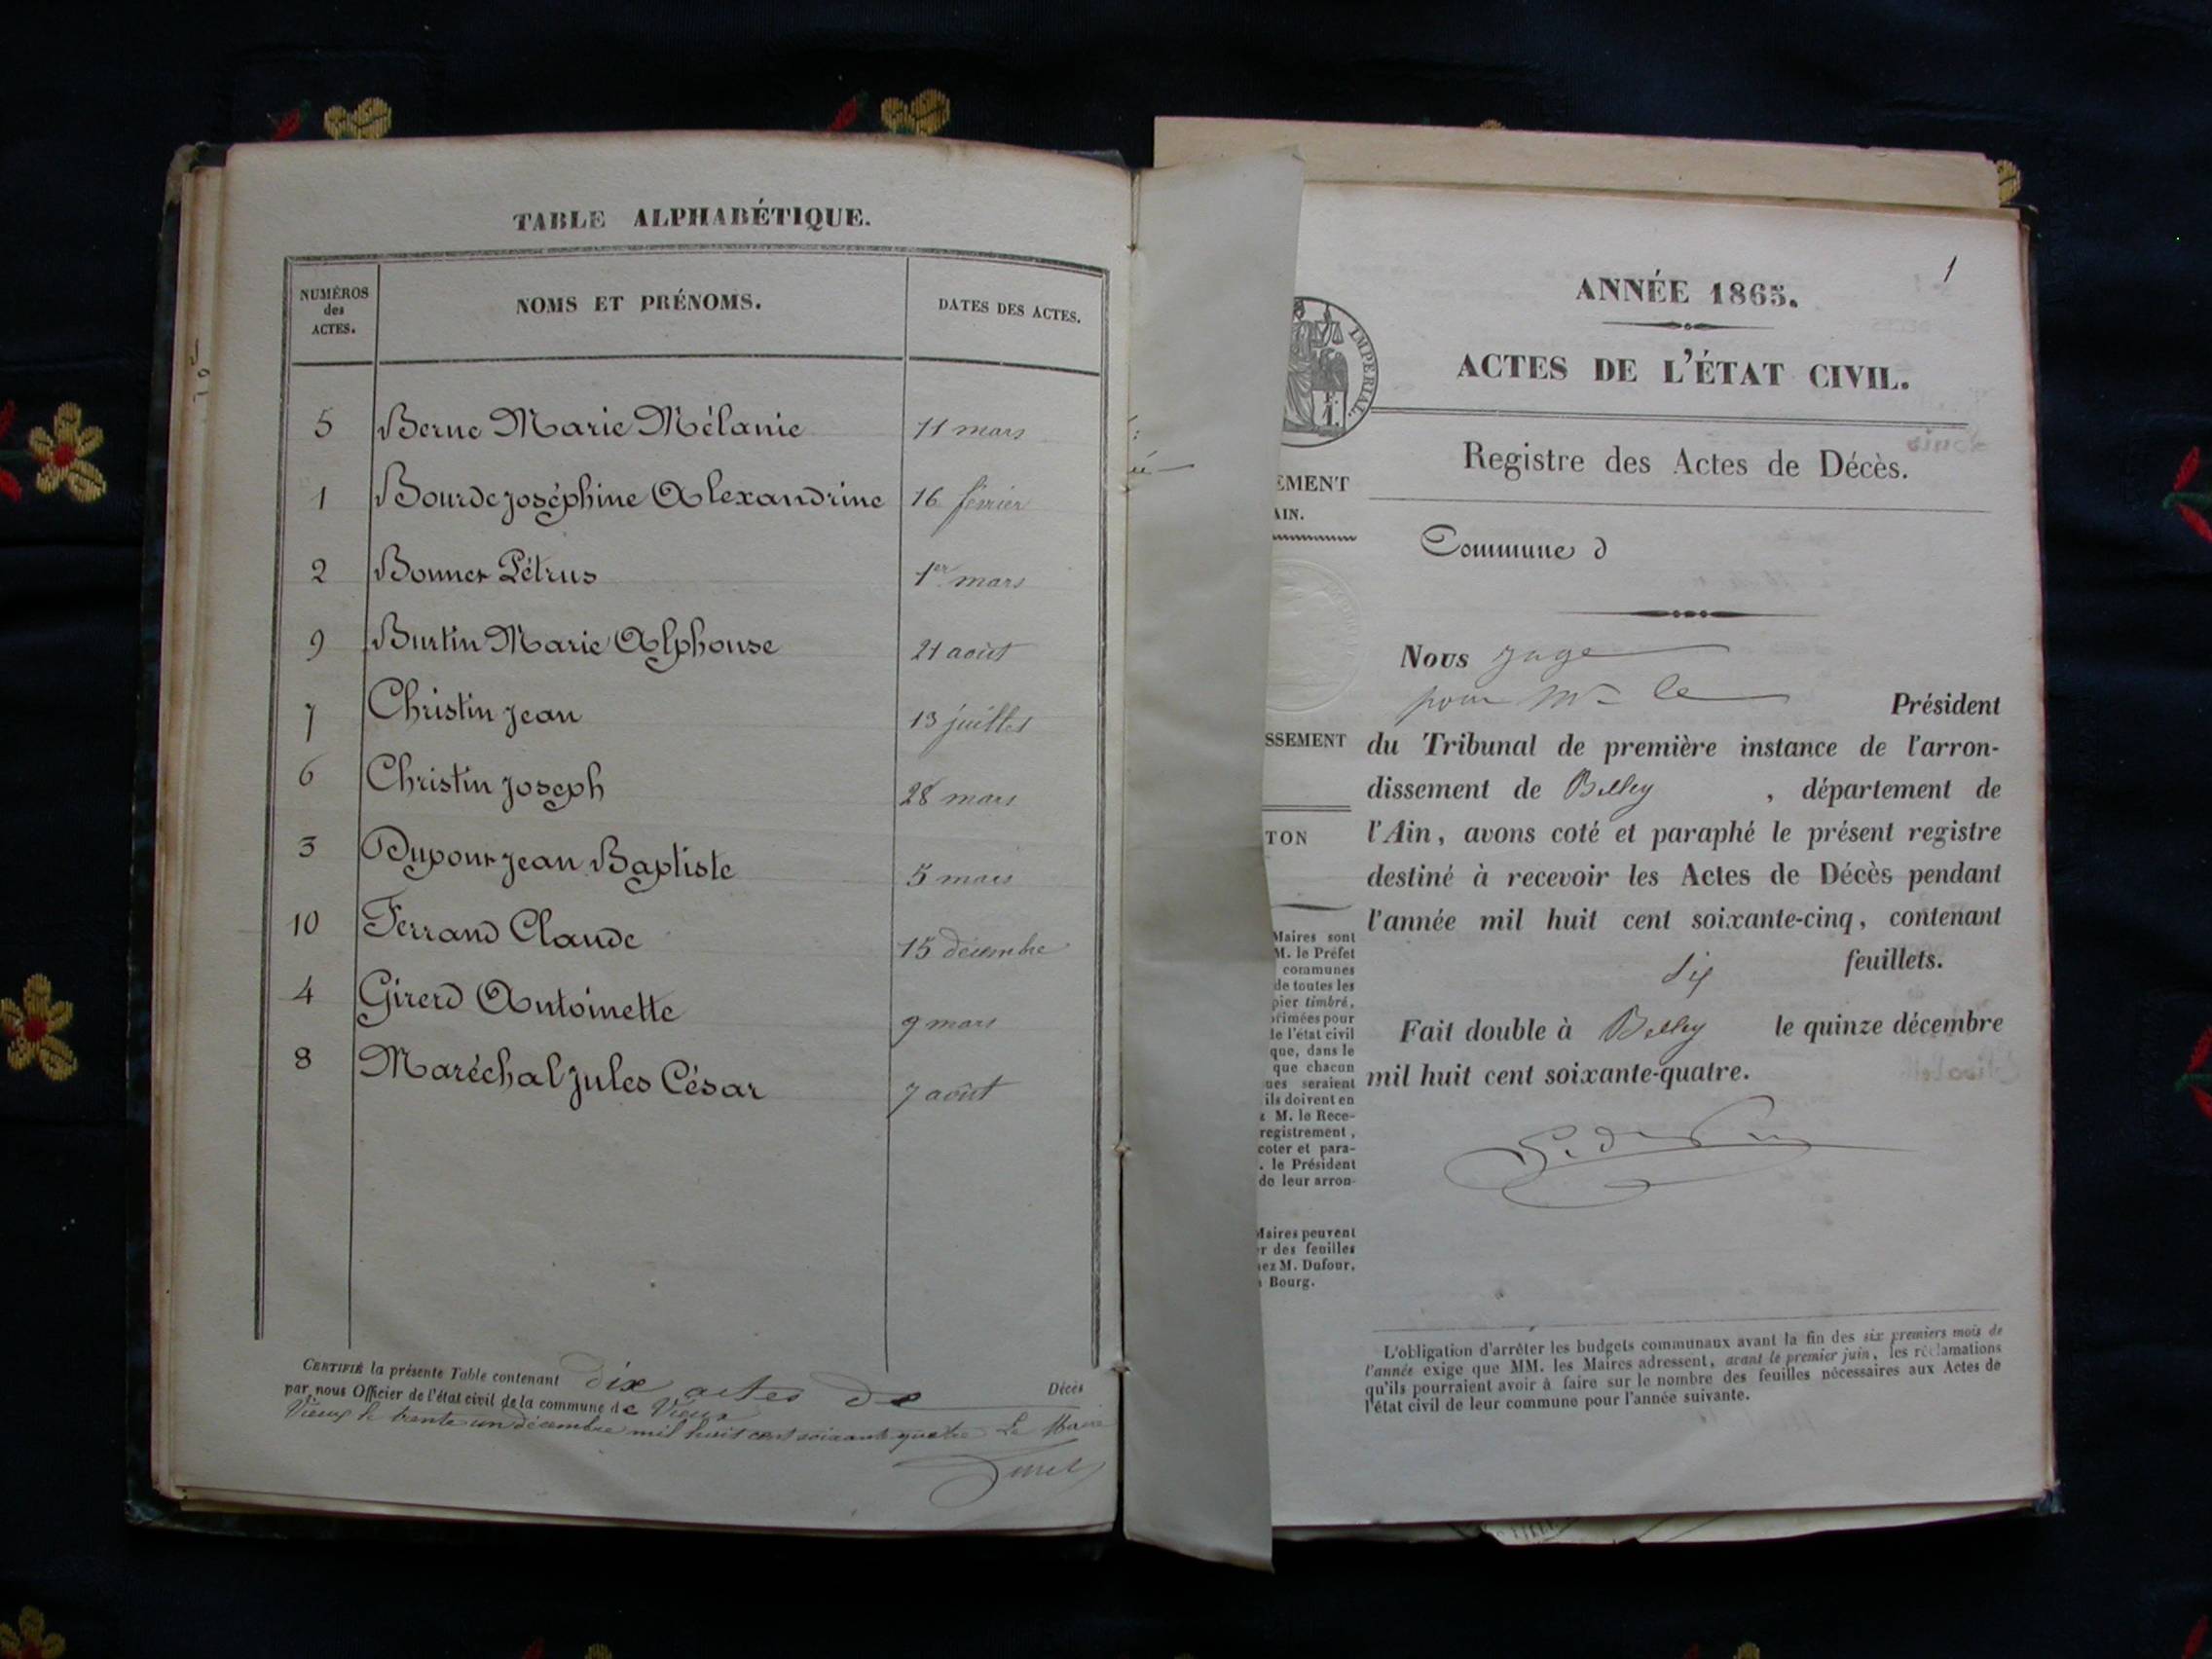 TABLE ALPHABÉTIQUE.
NUMÉROS des ACTES. NOMS ET PRÉNOMS. DATES DES ACTES.
5 Berne Marie Mélanie 11 mars
1 Bourde joséphine Alexandrine 16 février
2 Bonnet Pétrus 1er mars
9 Burtin Marie Alphonse 21 août
7 Christin jean 13 juillet
6 Christin joseph 28 mars
3 Dupont jean Baptiste 5 mars
10 Ferrand Claude 15 décembre
4 Girerd Antoinette 9 mars
8 Maréchal jules César 7 août
CERTIFIÉ la présente Table contenant dix actes de Décès
par nous Officier de l'état civil de la commune de Vieux
Vieux le trente un décembre mil huit cent soixante quatre Le Maire
1
ANNÉE 1865.
ACTES DE L'ÉTAT CIVIL.
IMPERIAL.
Registre des Actes de Décès.
EMENT
AIN.
Commune d
Nous juge
pour Mr le Président
SSEMENT
du Tribunal de première instance de l'arron-
dissement de Belley, département de
TON
l'Ain, avons coté et paraphé le présent registre
destiné à recevoir les Actes de Décès pendant
l'année mil huit cent soixante-cinq, contenant
six feuillets.
Fait double à Belley le quinze décembre
mil huit cent soixante-quatre.
Maires sont
M. le Préfet
communes
de toutes les
pier timbré,
rimées pour
le l'état civil
que, dans le
que chacun
ues seraient
ils doivent en
M. le Rece-
registrement,
coter et para-
. le Président
de leur arron-
Maires peuvent
r des feuilles
ez M. Dufour,
Bourg.
L'obligation d'arrêter les budgets communaux avant la fin des six premiers mois de
l'année exige que MM. les Maires adressent, avant le premier juin, les réclamations
qu'ils pourraient avoir à faire sur le nombre des feuilles nécessaires aux Actes de
l'état civil de leur commune pour l'année suivante.